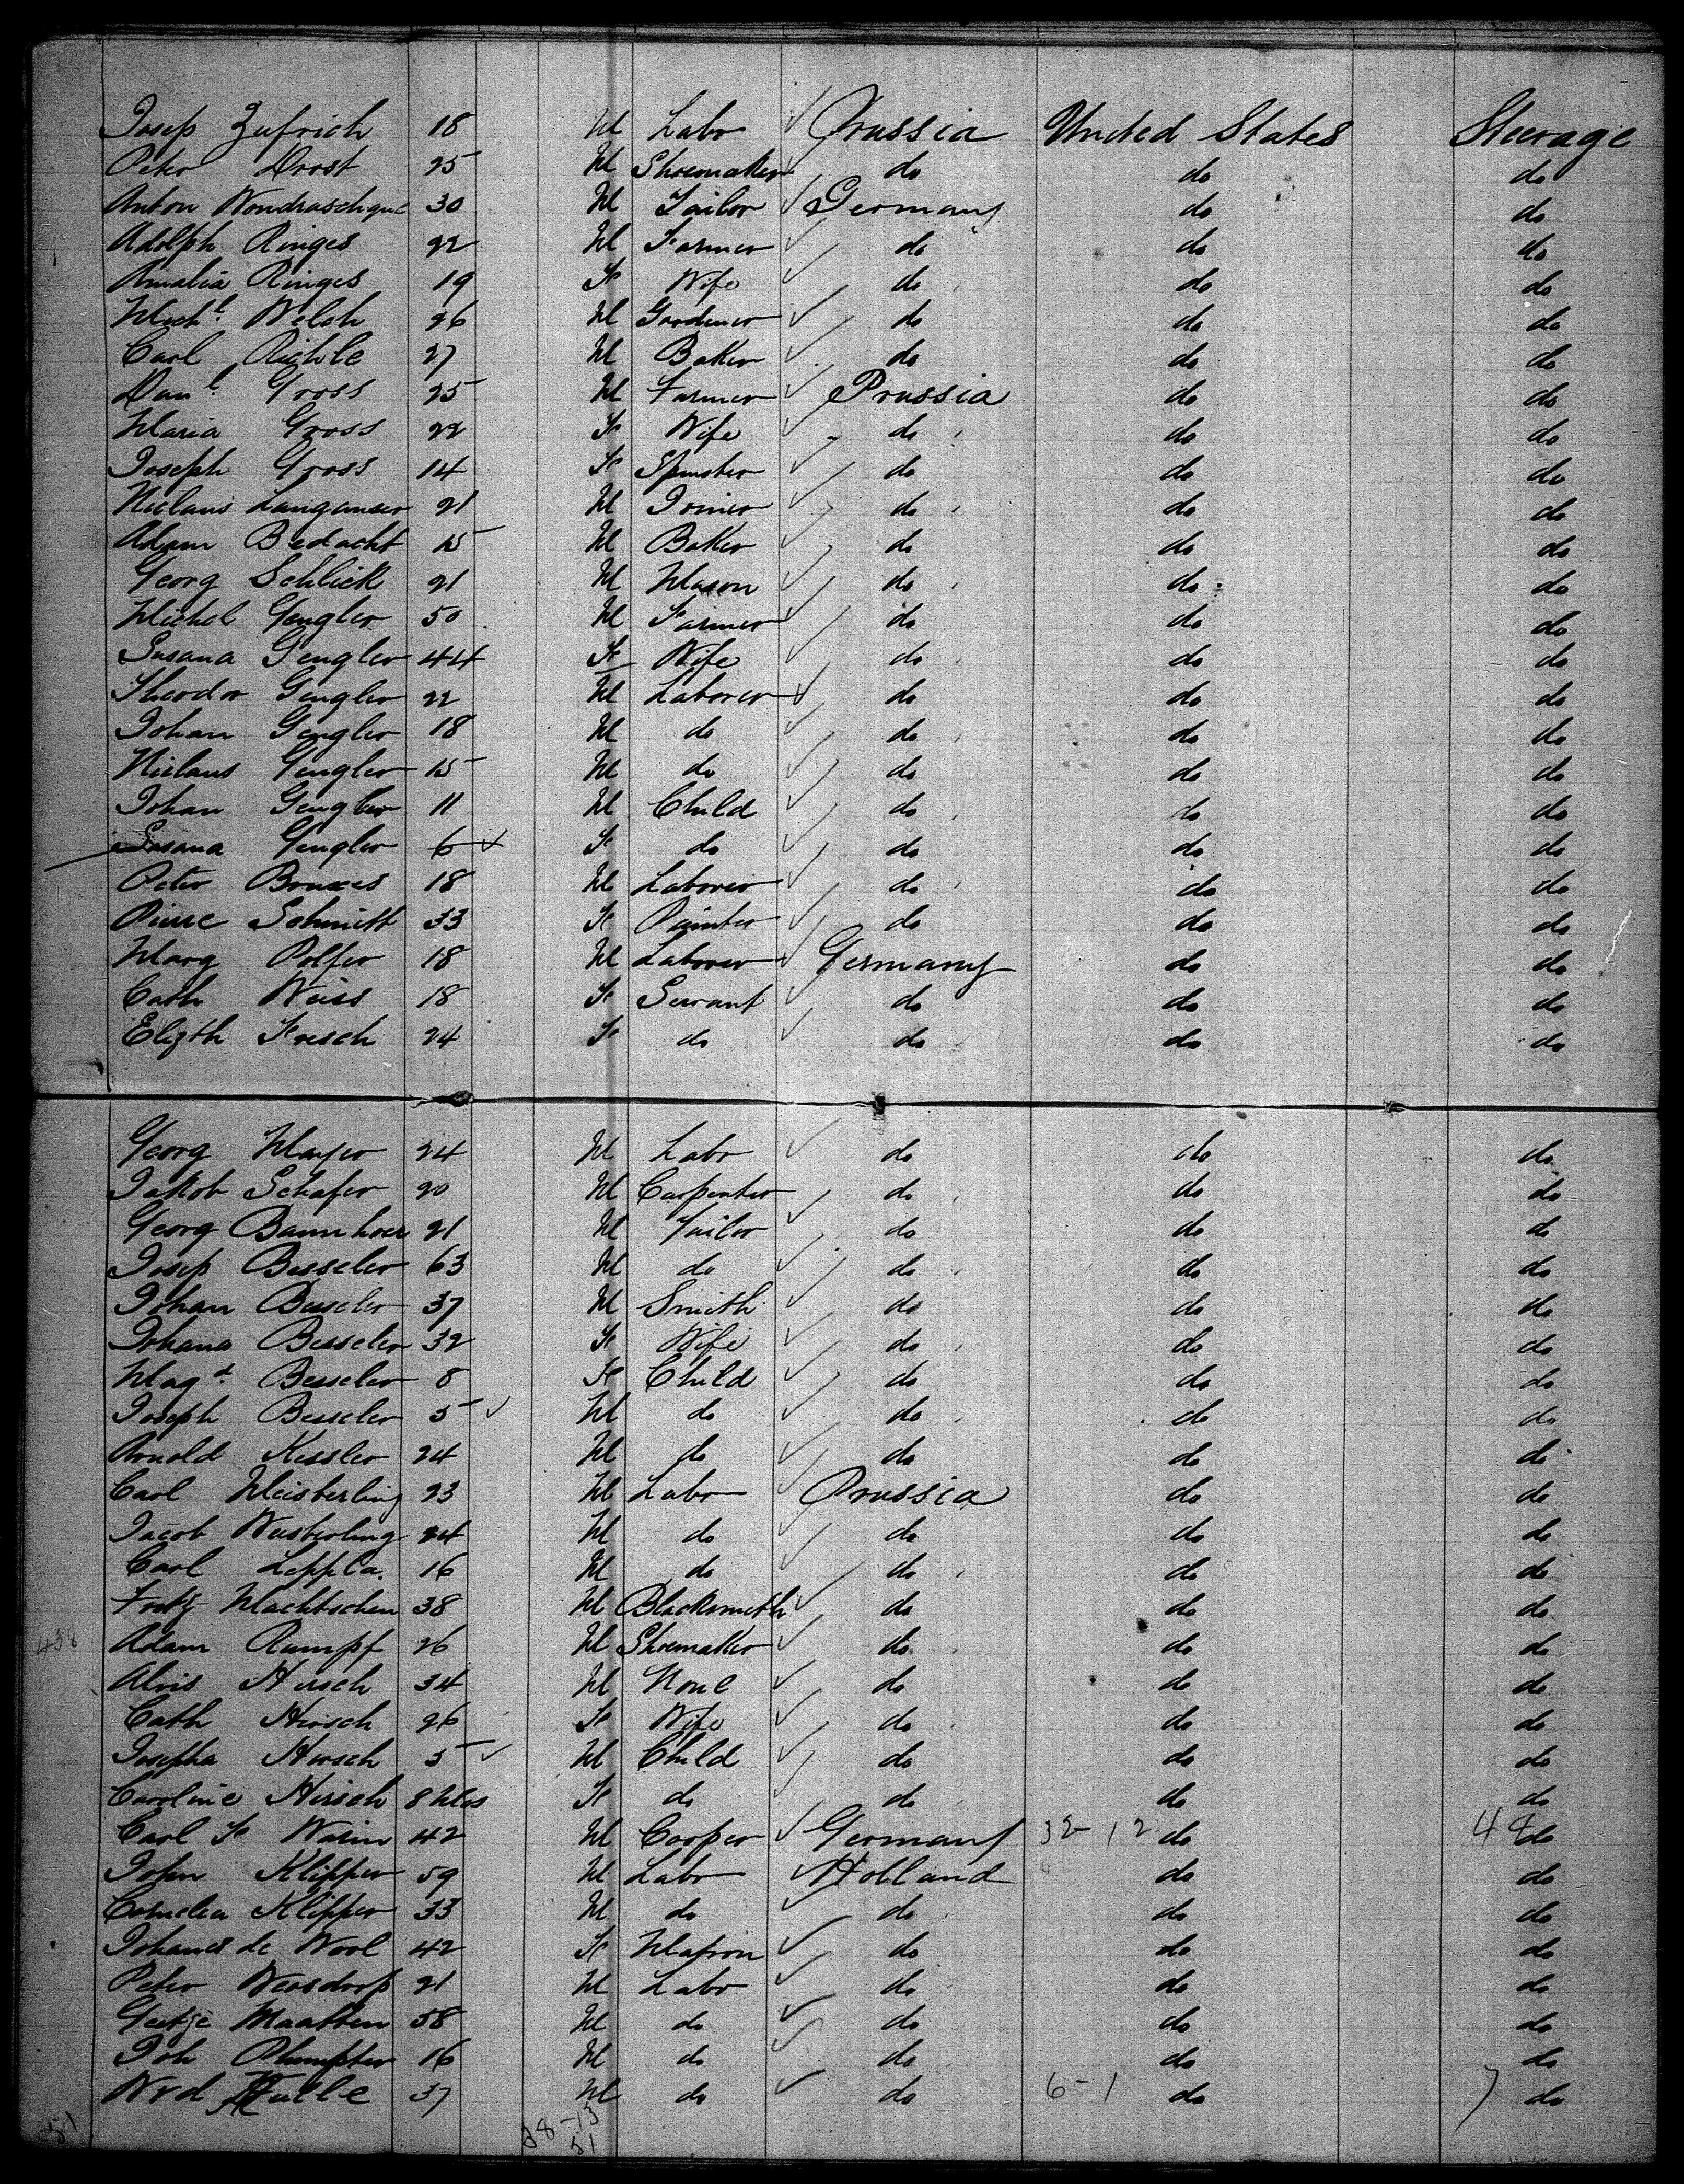 Josep Zufrich 18 M Labr Prussia United States Steerage
Peter Drost 25 M Shoemaker do do do
Anton 30 M Tailor Germany do do
Adolph Ringes 22 M Farmer do do do
Amalia Ringes 19 F Wife do do do
Michl Welch 26 M Gardener do do do
Carl Richle 27 M Baker do do do
Danl Gross 25 M Farmer Prussia do do
Maria Gross 22 F Wife do do do
Joseph Gross 14 F Spinster do do do
Niclaus 21 M Joiner do do do
Adam Bedacht 15 M Baker do do do
Georg Schlick 21 M Mason do do do
Michel Gengler 50 M Farmer do do do
Susana Gengler 44 F Wife do do do
Theodor Gengler 22 M Laborer do do do
Johan Gengler 18 M do do do do
Niclaus Gengler 15 M do do do do
Johan Gengler 11 M Child do do do
Susana Gengler 6 F do do do do
Peter 18 M Laborer do do do
Pierre Schmitt 33 F Painter do do do
Marg Polfer 18 M Laborer Germany do do
Cath Weiss 18 F Servant do do do
Elizth Fresch 24 F do do do do
Georg Mayer 24 M Labr do do do
Jakob Schafer 20 M Carpenter do do do
Georg 21 M Tailor do do do
Josep Besseler 63 M do do do do
Johan Besseler 37 M Smith do do do
Johana Besseler 32 F Wife do do do
Magt Besseler 8 F Child do do do
Joseph Besseler 5 M do do do do
Arnold Kessler 24 M do do do do
Carl Meisterling 23 M Labr Prussia do do
Jacob 24 M do do do do
Carl Leppla. 16 M do do do do
Fritz 38 M Blacksmith do do do
438 Adam Rumpf 26 M Shoemaker do do do
Alois Hirsch 34 M None do do do
Cath Hirsch 26 F Wife do do do
Josepha Hirsch 5 M Child do do do
Caroline Hirsch 8 Mos F do do do do
Carl F 42 M Cooper Germany 32-12 do do
John Klipper 59 M Labr Holland do do
Cornelia Klipper 33 M do do do do
Johanes de Wool 42 F Matron do do do
Peter Wersdorp 21 M Labr do do do
Geetje Maatten 58 M do do do do
Joh 16 M do do do do
37 M do do 6-1 do 7 do
51 38-13
51